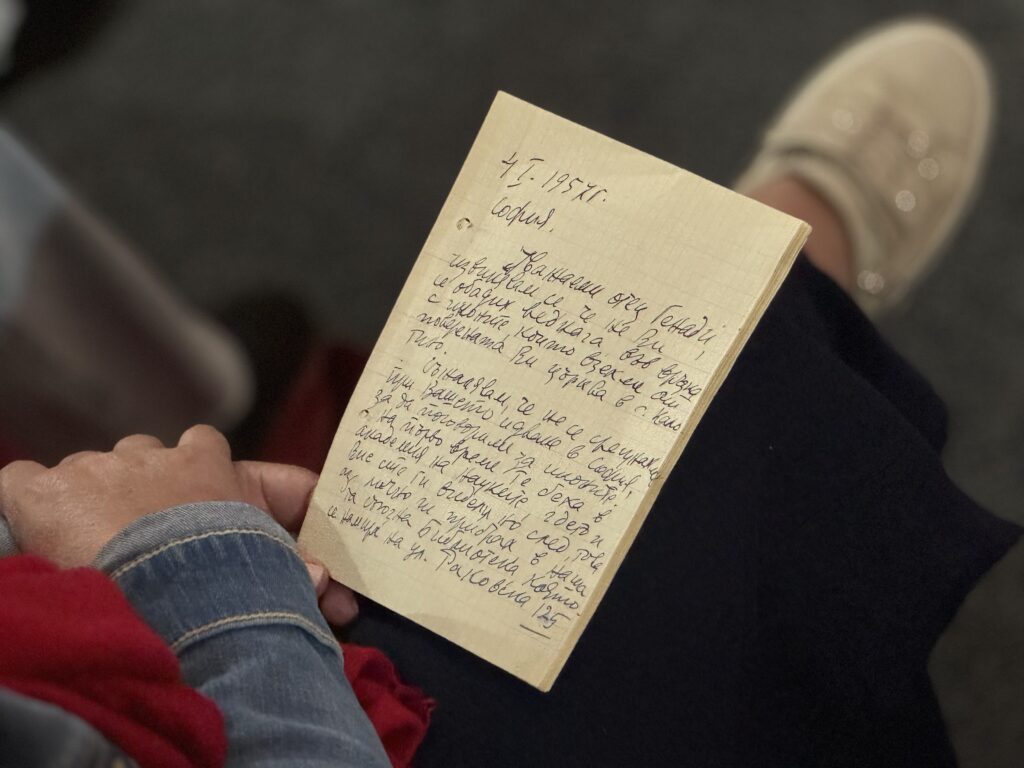 4 I. 1957г.
София.
Уважаеми отец Генадзi,
извинявам се, че не Ви
се обадих веднага във връзка
с иконите които взехме от
поверената Ви църква в с.
Съжалявам, че не се срещнахме
при Вашето идване в София,
за да поговорим за иконите.
На първо време те бяха в
академия на науките где то и
Вие сте ги видели, но след това
ги прибрах в наша
та стояна библиотека която
се намира на ул. Раковски 125